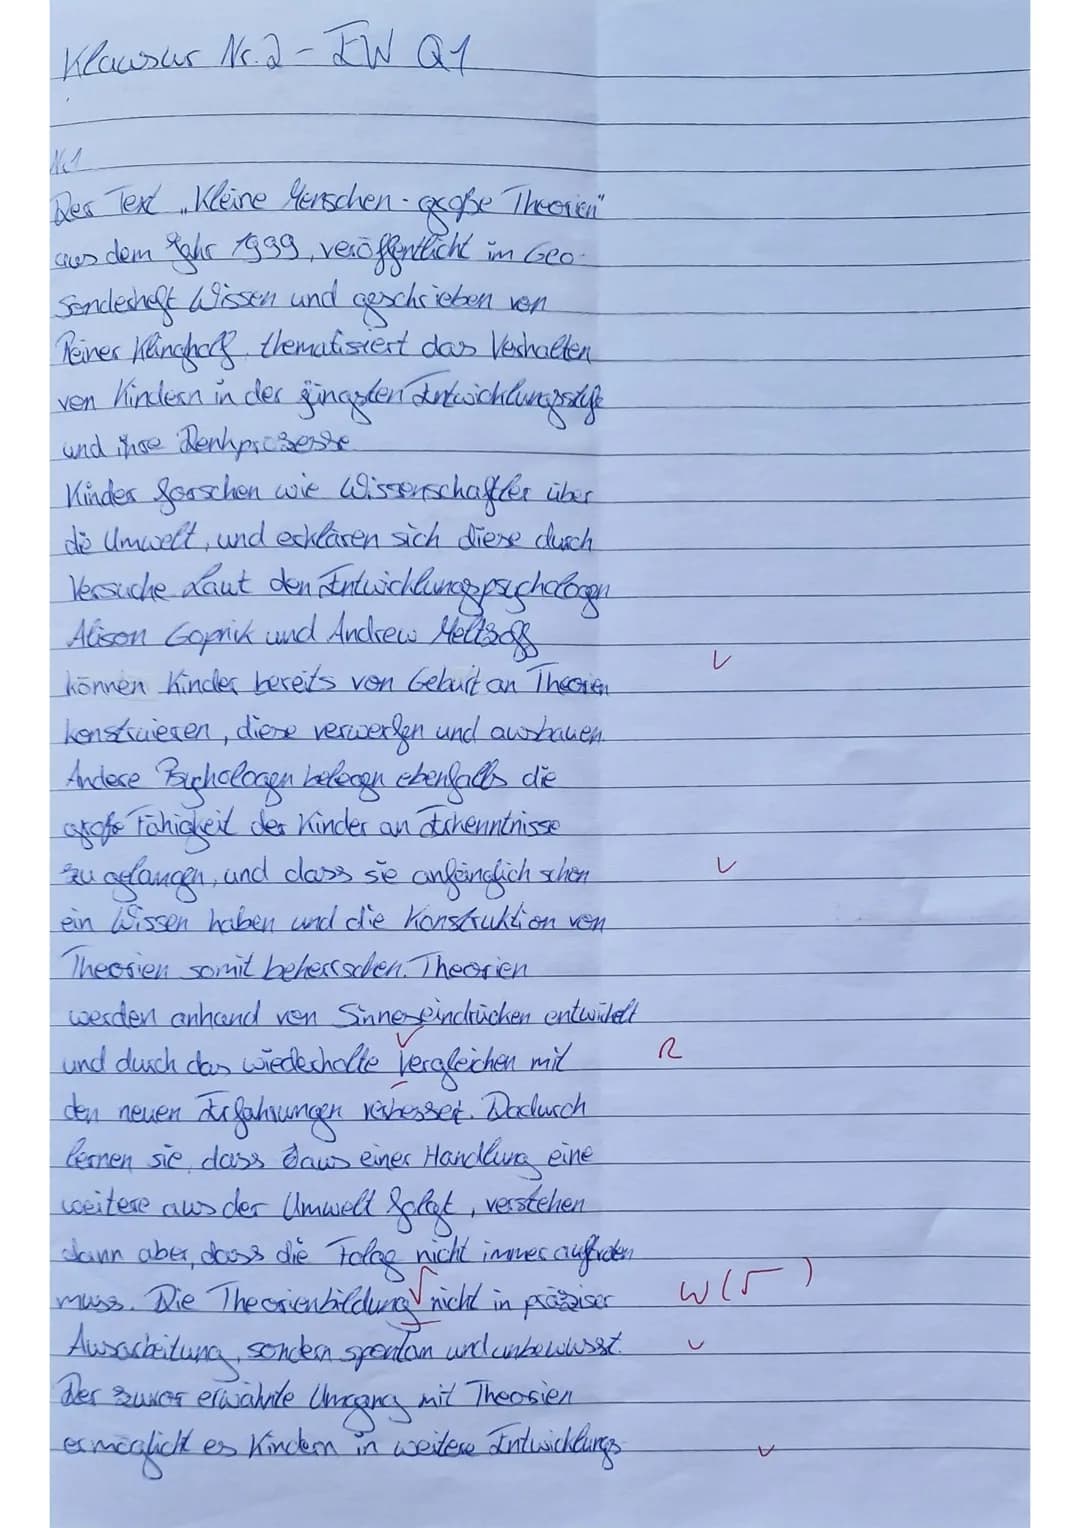 Klausur Nr. 2 - EW Q1
Nr.1
Der Text „Kleine Menschen - große Theorien"
aus dem Jahr 1999, veröffentlicht im Geo-
Sonderheft Wissen und geschrieben von
Reiner Klingholz, thematisiert das Verhalten
von Kindern in der jüngsten Entwicklungsstufe
und ihre Denkprozesse.
Kinder forschen wie Wissenschaftler über
die Umwelt, und erklären sich diese durch
Versuche. Laut den Entwicklungspsychologen
Alison Gopnik und Andrew Meltzoff
können Kinder bereits von Geburt an Theorien
konstruieren, diese verwerfen und ausbauen.
Andere Psychologen belegen ebenfalls die
große Fähigkeit der Kinder an Erkenntnisse
zu gelangen, und dass sie anfänglich schon
ein Wissen haben und die Konstruktion von
Theorien somit beherrschen. Theorien
werden anhand von Sinneseindrücken entwickelt
und durch das wiederholte Vergleichen mit R
den neuen Erfahrungen verbessert. Dadurch
lernen sie, dass aus einer Handlung eine
weitere aus der Umwelt folgt, verstehen
dann aber, dass die Folge nicht immer auftreten
muss. Die Theorienbildung nicht in präziser W (√ )
Ausarbeitung, sondern spontan und unbewusst.
Der zuvor erwähnte Umgang mit Theorien
ermöglicht es Kindern in weitere Entwicklungs-